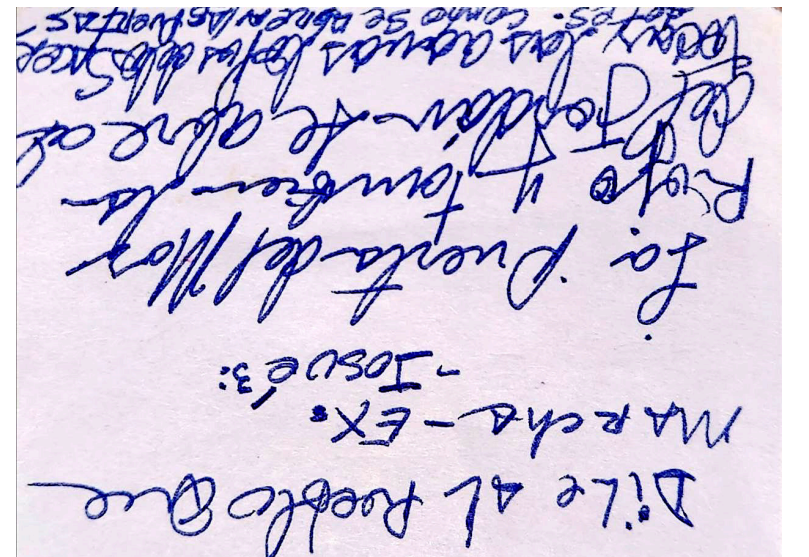 DiLe AL Pueblo Que
MARcha - EX:
- Iosué 3:
La Puerta del Mar
Rojo y tambien la
del Jordán se abre al
las aguas los de los Sacer
dotes. Como se abren las Puertas